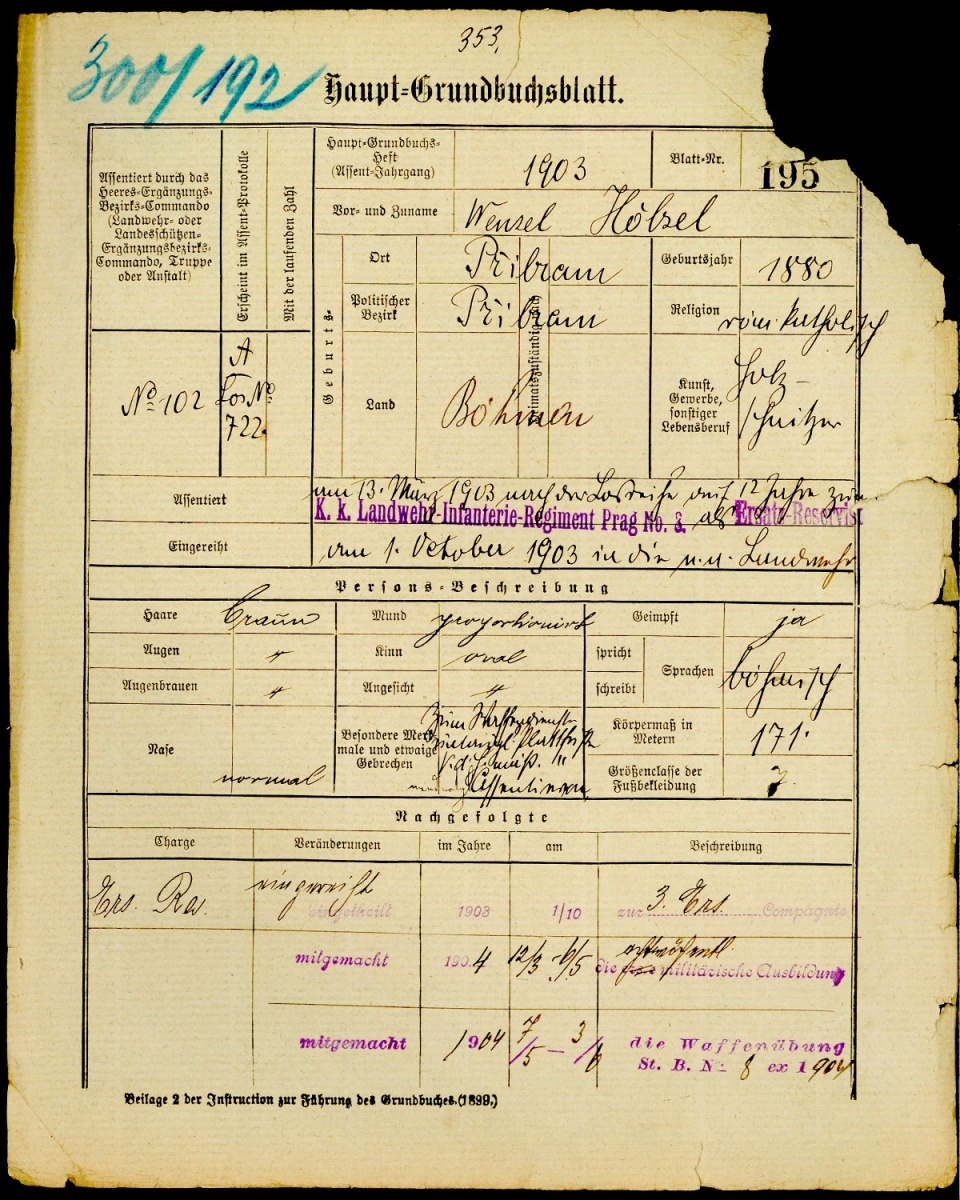 353.
300/192
Haupt-Grundbuchsblatt.
Assentiert durch das
Heeres-Ergänzungs-
Bezirks-Commando
(Landwehr- oder
Landesschützen-
Ergänzungsbezirks-
Commando, Truppe
oder Anstalt)
Erscheint im Assent-Protokolle
Mit der laufenden Zahl
Haupt-Grundbuchs-
Heft
(Assent-Jahrgang)
1903
Blatt-Nr.
195
Vor- und Zuname
Wenzel Hölzel
Geburts-
Ort
Přibram
Geburtsjahr
1880
Politischer
Bezirk
Přibram
Religion
röm. katholisch
Land
Böhmen
Kunst,
Gewerbe,
sonstiger
Lebensberuf
Holz-
schnitzer
No 102
A
Los No
722.
Assentiert
am 13. März 1903 nach der Losreihe auf 12 Jahre zum
K. k. Landwehr-Infanterie-Regiment Prag No. 8. als Ersatz-Reservist
Eingereiht
am 1. October 1903 in die Landwehr
Persons-Beschreibung
Haare
braun
Mund
proportionirt
Geimpft
ja
Augen
"
Kinn
oval
spricht
schreibt
Sprachen
böhmisch
Augenbrauen
"
Angesicht
"
Nase
normal
Besondere Merk-
male und etwaige
Gebrechen
Zum Waffendienste
Körpermaß in
Metern
171.
Größenclasse der
Fußbekleidung
7
Nachgefolgte
Charge
Veränderungen
im Jahre
am
Beschreibung
Ers. Res.
eingereiht
eingetheilt 1903 1/10 zur 3. Ers. Compagnie
mitgemacht 1904 12/3 - 6/5 die achtwöchentl. militärische Ausbildung
mitgemacht 1904 7/5 - 3/6 die Waffenübung
St. B. No 8 ex 1904
Beilage 2 der Instruction zur Führung des Grundbuches.(1899.)